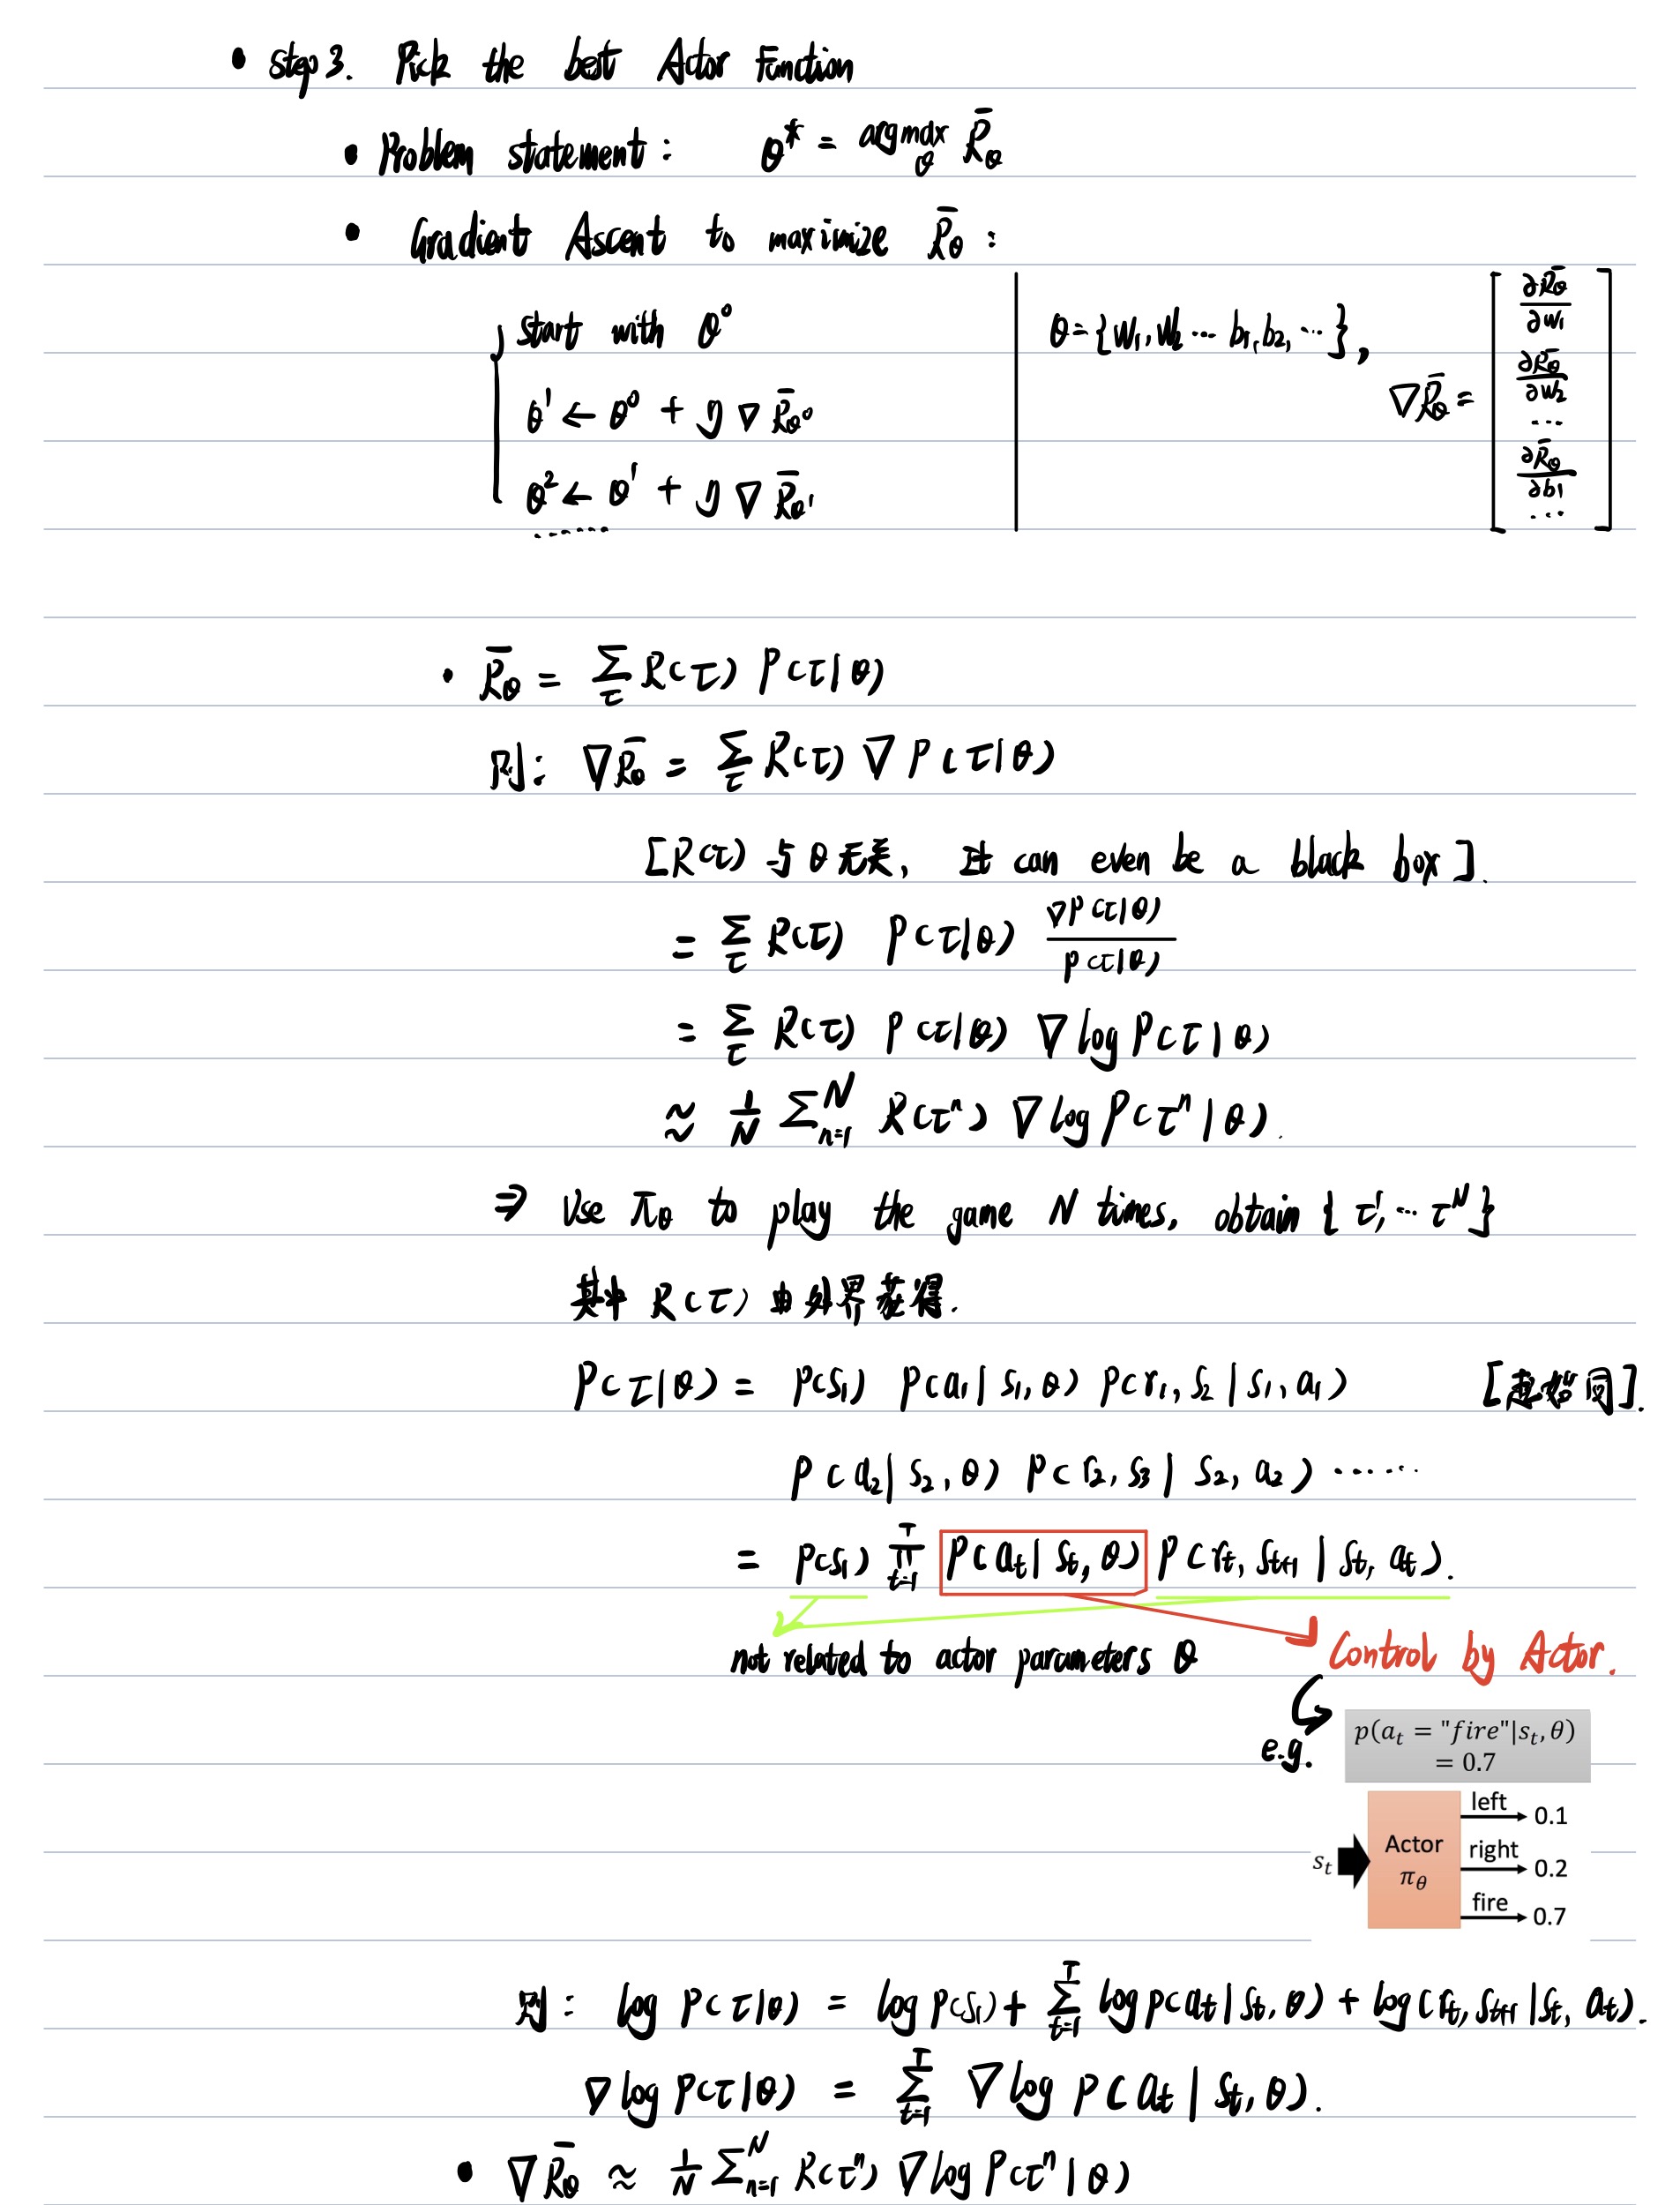 • Step 3. Pick the best Actor Function
• Problem statement: θ* = argmax_θ R̄_θ
• Gradient Ascent to maximize R̄_θ :
start with θ⁰
θ¹ ← θ⁰ + η ∇ R̄_θ⁰
θ² ← θ¹ + η ∇ R̄_θ¹
......
θ = {w₁, w₂ ... b₁, b₂, ...},
∇R̄_θ = [ ∂R̄_θ/∂w₁
∂R̄_θ/∂w₂
...
∂R̄_θ/∂b₁
... ]
• R̄_θ = Σ_τ R(τ) P(τ|θ)
则: ∇R̄_θ = Σ_τ R(τ) ∇ P(τ|θ)
[R(τ) 与 θ 无关, It can even be a black box].
= Σ_τ R(τ) P(τ|θ) ∇P(τ|θ) / P(τ|θ)
= Σ_τ R(τ) P(τ|θ) ∇ log P(τ|θ)
≈ 1/N Σ_{n=1}^N R(τⁿ) ∇ log P(τⁿ|θ).
⇒ Use π_θ to play the game N times, obtain {τ¹, ... τᴺ}
其中 R(τ) 由外界获得.
P(τ|θ) = p(s₁) p(a₁|s₁, θ) p(r₁, s₂|s₁, a₁) [起始同].
p(a₂|s₂, θ) p(r₂, s₃|s₂, a₂) ......
= p(s₁) ∏_{t=1}^T p(a_t|s_t, θ) p(r_t, s_{t+1}|s_t, a_t).
not related to actor parameters θ Control by Actor.
e.g. p(a_t = "fire"|s_t, θ)
= 0.7
left 0.1
s_t Actor π_θ right 0.2
fire 0.7
则: log P(τ|θ) = log p(s₁) + Σ_{t=1}^T log p(a_t|s_t, θ) + log(r_t, s_{t+1}|s_t, a_t).
∇ log P(τ|θ) = Σ_{t=1}^T ∇ log p(a_t|s_t, θ).
• ∇R̄_θ ≈ 1/N Σ_{n=1}^N R(τⁿ) ∇ log P(τⁿ|θ)